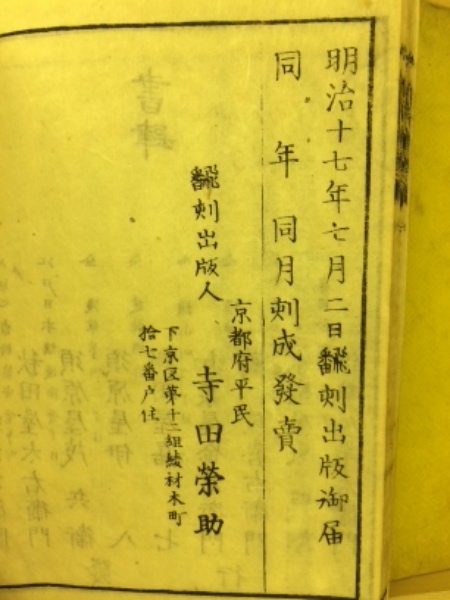 明治十七年七月二日飜刻出版御届
同年同月刻成發賣
飜刻出版人
京都府平民
寺田榮助
下京区第十二組綾材木町
拾七番戸住